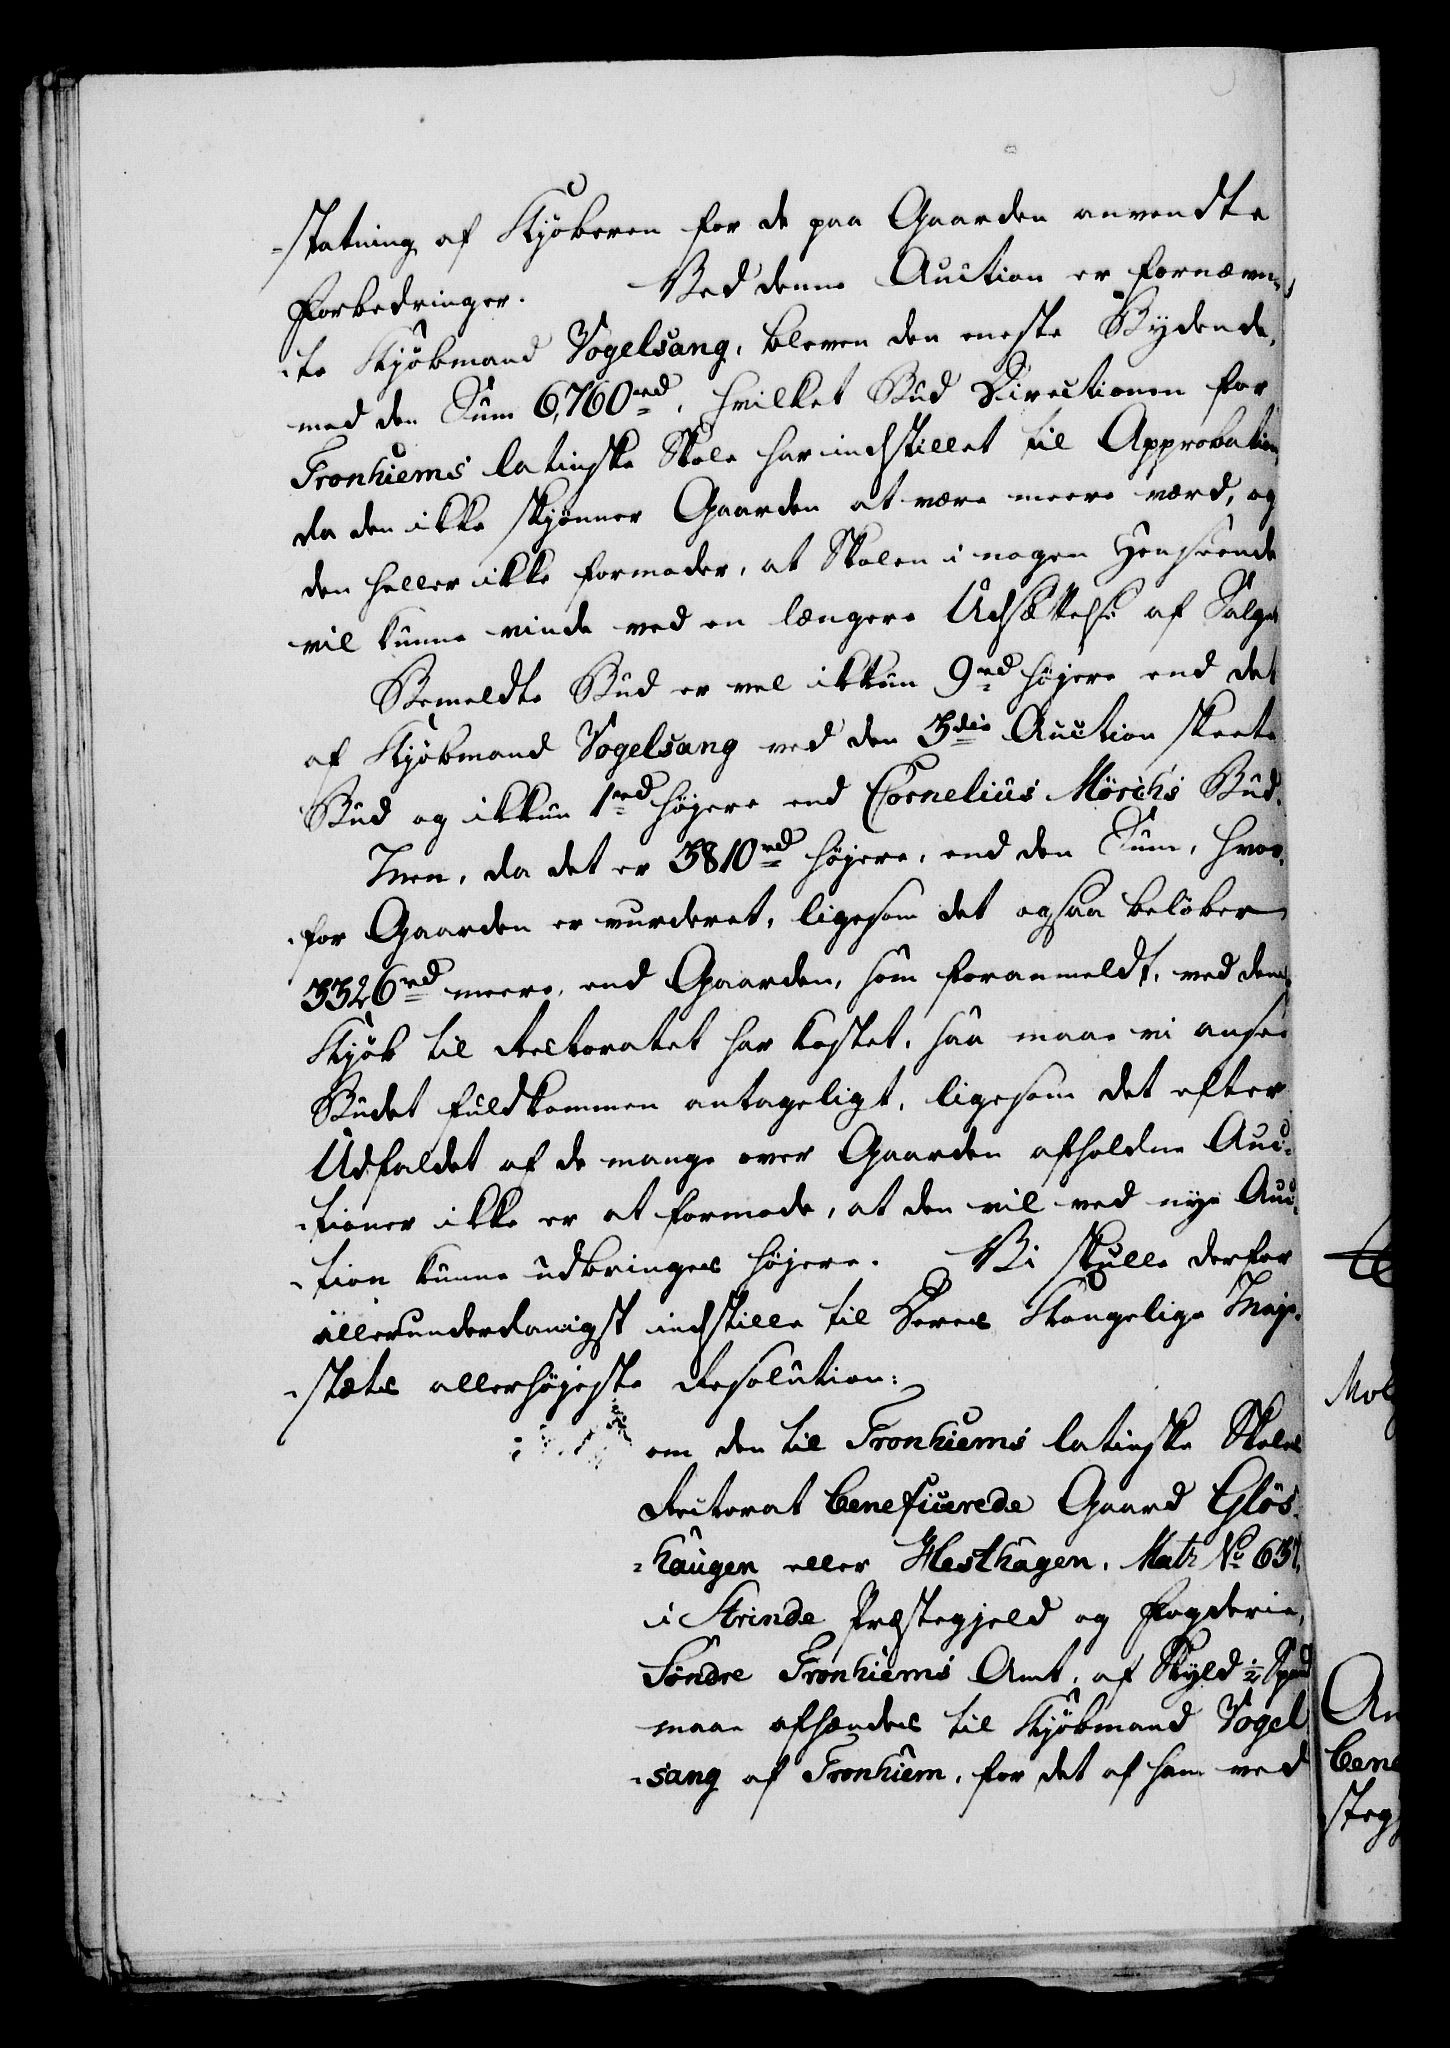 -statning af Kjøberen for de paa Gaarden anvendte
Forbedringer. Ved denne Auction er fornævn-
-te Kjøbmand Vogelsang, bleven den eneste Bydende,
med den Sum 6,760 rd, hvilket Bud Directionen for
Tronhiems latinske Skole har indstillet til Approbation
da den ikke skjønner Gaarden at være meere værd, og
den heller ikke formoder, at Skolen i nogen Henseende
vil kunne vinde ved en længere Udsættelse af Salget
Bemeldte Bud er vel ikkun 9 rd højere end det
af Kjøbmand Vogelsang ved den 3die Auction skeete
Bud og ikkun 1 rd højere end Cornelius Mörchs Bud.
Men, da det er 3810 rd højere, end den Sum, hvor-
-for Gaarden er vurderet, ligesom det ogsaa beløber
3326 rd meere, end Gaarden, som foranmeldt, ved dens
Kjøb til Rectoratet har kostet, saa maae vi ansee
Budet fuldkommen antageligt, ligesom det efter
Udfaldet af de mange over Gaarden afholdne Auc-
-tioner ikke er at formode, at den vil ved nye Auc-
-tion kunne udbringes højere. Vi skulle derfor
allerunderdanigst indstille til Deres Kongelige Maje-
-stæts allerhøjeste Resolution:
om den til Tronhiems latinske Skoles
Rectorat beneficerede Gaard Glös-
-haugen eller Hesthagen, Matr No 637,
i Strinde Præstegjeld og Fogderie,
Søndre Tronhiems Amt, af Skyld 1/2 Spand
maae afhændes til Kjøbmand Vogel-
-sang af Tronhiem, for det af ham ved